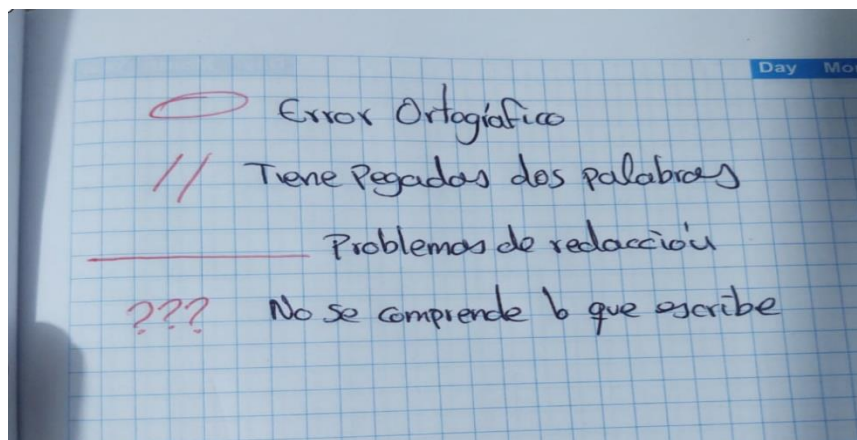 Day Mo
Error Ortográfico
// Tiene Pegadas dos palabras
Problemas de redacción
??? No se comprende lo que escribe